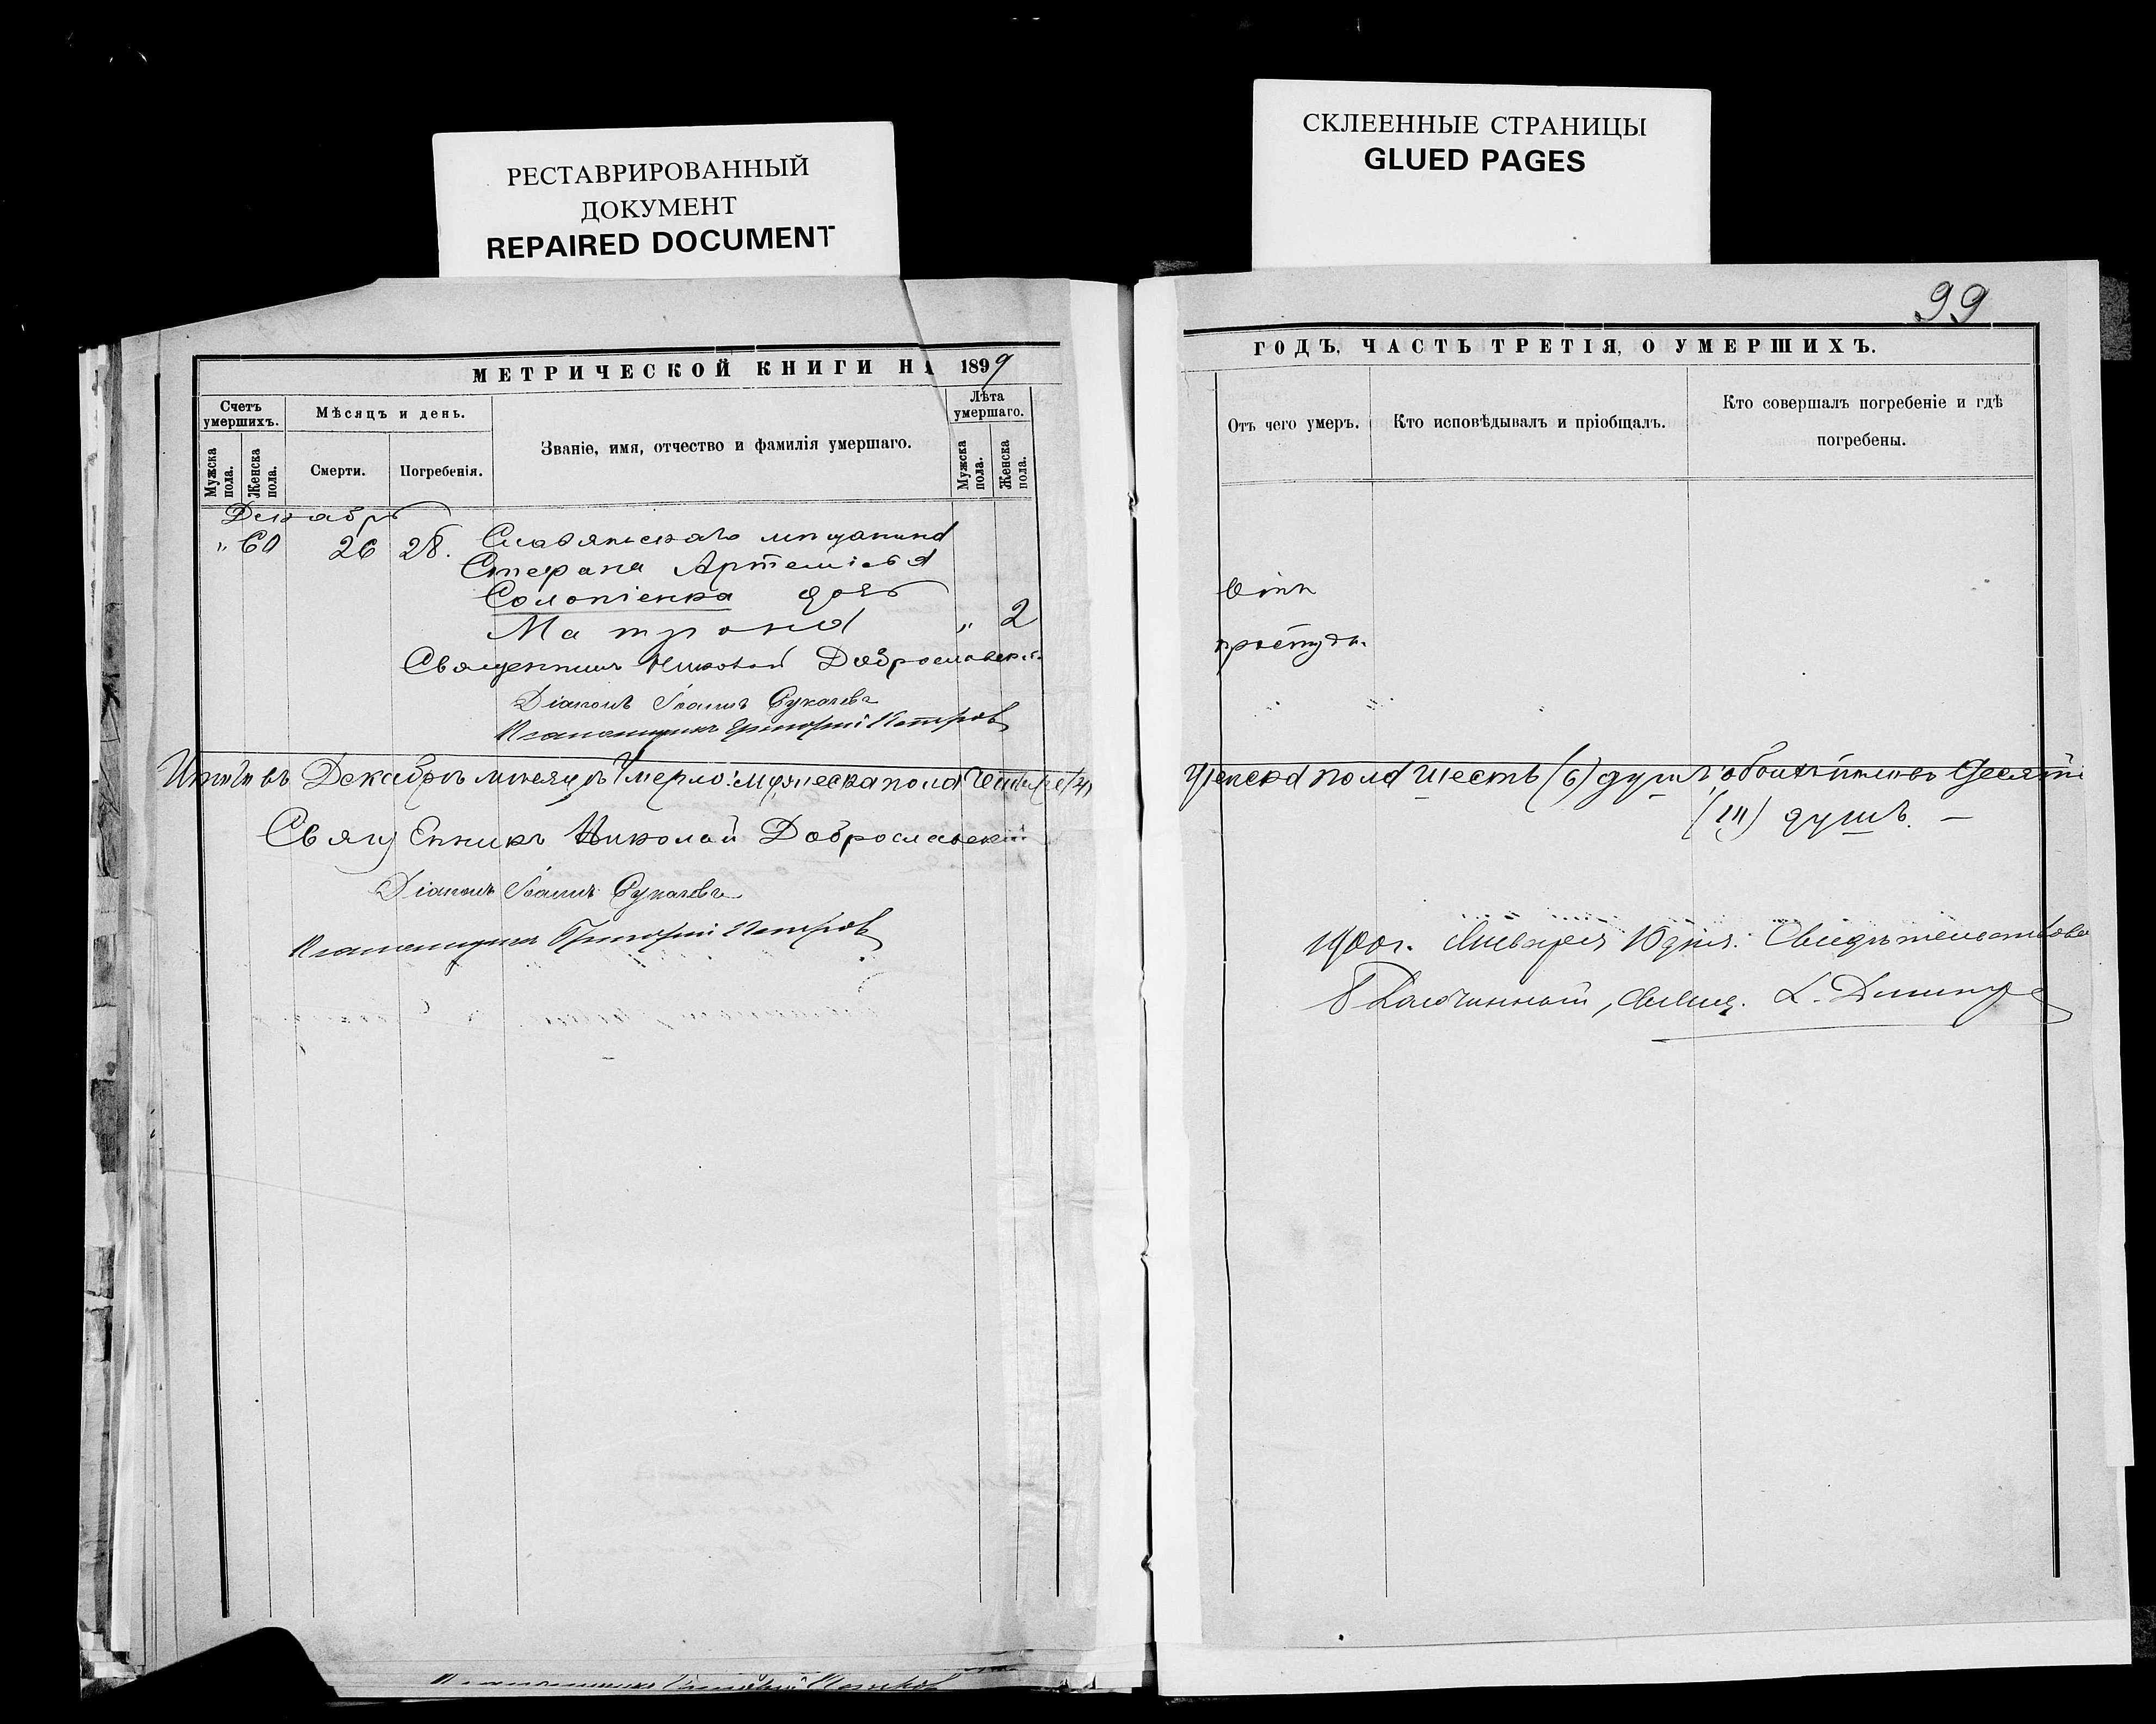 РЕСТАВРИРОВАННЫЙ
ДОКУМЕНТ
REPAIRED DOCUMENT
СКЛЕЕННЫЕ СТРАНИЦЫ
GLUED PAGES
МЕТРИЧЕСКОЙ КНИГИ НА 1899
Счетъ умершихъ.
Мужска пола.
Женска пола.
Мѣсяцъ и день.
Смерти.
Погребенія.
Званіе, имя, отчество и фамилія умершаго.
Лѣта умершаго.
Мужска пола.
Женска пола.
Декабрь
" 60 26 28. Славянскаго мѣщанина
Стефана Артеміева
Солопіенка дочь
Матрона " 2
Священникъ Николай Доброславскій
Діаконъ Іоаннъ Рукачевъ
Псаломщикъ Григорій Петровъ
Итого въ Декабрѣ месяцѣ Умерло: мужеска пола четыре (4)
Священникъ Николай Доброславскій
Діаконъ Іоаннъ Рукачевъ
Псаломщикъ Григорій Петровъ
99
ГОДЪ, ЧАСТЬ ТРЕТІЯ, О УМЕРШИХЪ.
Отъ чего умеръ.
Кто исповѣдывалъ и пріобщалъ.
Кто совершалъ погребеніе и гдѣ погребены.
Отъ
простуды.
женска пола шесть (6) душъ, обоихъ половъ десять
(10) душъ. —
1900г. Января 10 дня. Свидѣтельствовалъ
Благочинный, Свящ.